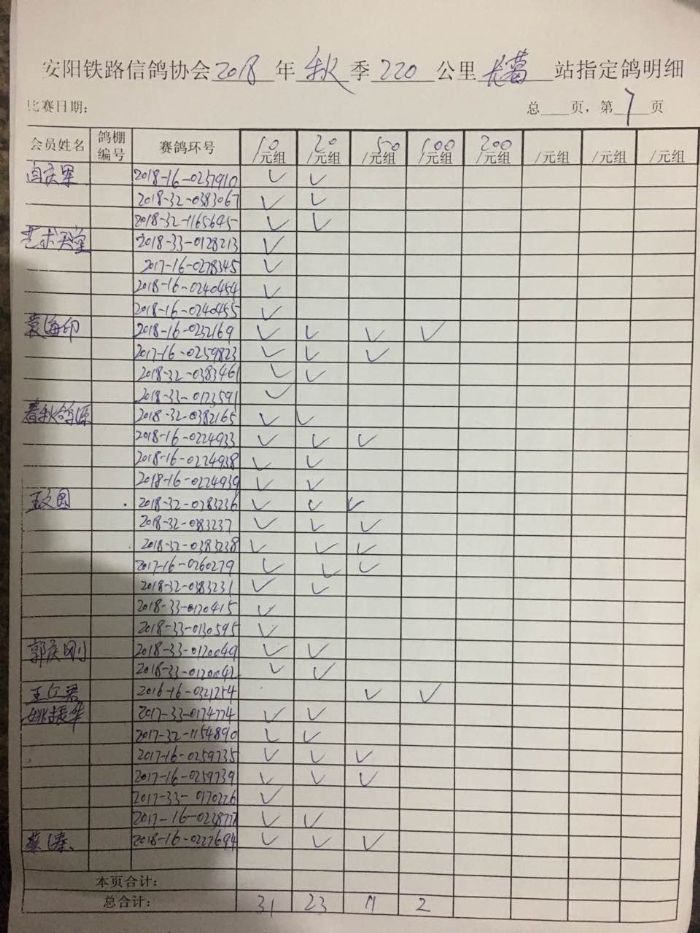 安阳铁路信鸽协会2018年秋季220公里长葛站指定鸽明细
比赛日期: 总 页,第7页
会员姓名 鸽棚编号 赛鸽环号 10/元组 20/元组 50/元组 100/元组 200/元组 /元组 /元组 /元组
2018-16-0237910 ✓ ✓
2018-32-0383067 ✓ ✓
2018-32-1165645 ✓ ✓
艺术天堂 2018-33-0128213 ✓
2017-16-0278345 ✓
2018-16-0240454 ✓
2018-16-0240455 ✓
袁海印 2018-16-0232169 ✓ ✓ ✓ ✓
2017-16-0259823 ✓ ✓ ✓
2018-32-0383461 ✓ ✓
2018-33-0173591 ✓
春秋鸽源 2018-32-0382165 ✓ ✓
2018-16-0224933 ✓ ✓ ✓
2018-16-0224938 ✓ ✓
2018-16-0224939 ✓ ✓
王文国 2018-32-0383236 ✓ ✓ ✓
2018-32-0383237 ✓ ✓ ✓
2018-32-0383238 ✓ ✓ ✓
2017-16-0260279 ✓ ✓ ✓
2018-32-0383231 ✓ ✓
2018-33-0170415 ✓
2018-33-0130595 ✓
郭庆刚 2018-33-0120049 ✓ ✓
2018-33-0120042 ✓ ✓
2016-16-0321254 ✓ ✓
姚振华 2017-33-0174774 ✓ ✓
2017-32-1154890 ✓ ✓
2017-16-0259735 ✓ ✓ ✓
2017-16-0259739 ✓ ✓ ✓
2017-33-0170226 ✓
2017-16-0228777 ✓ ✓
2018-16-0227694 ✓ ✓ ✓
本页合计:
总合计: 31 23 11 2